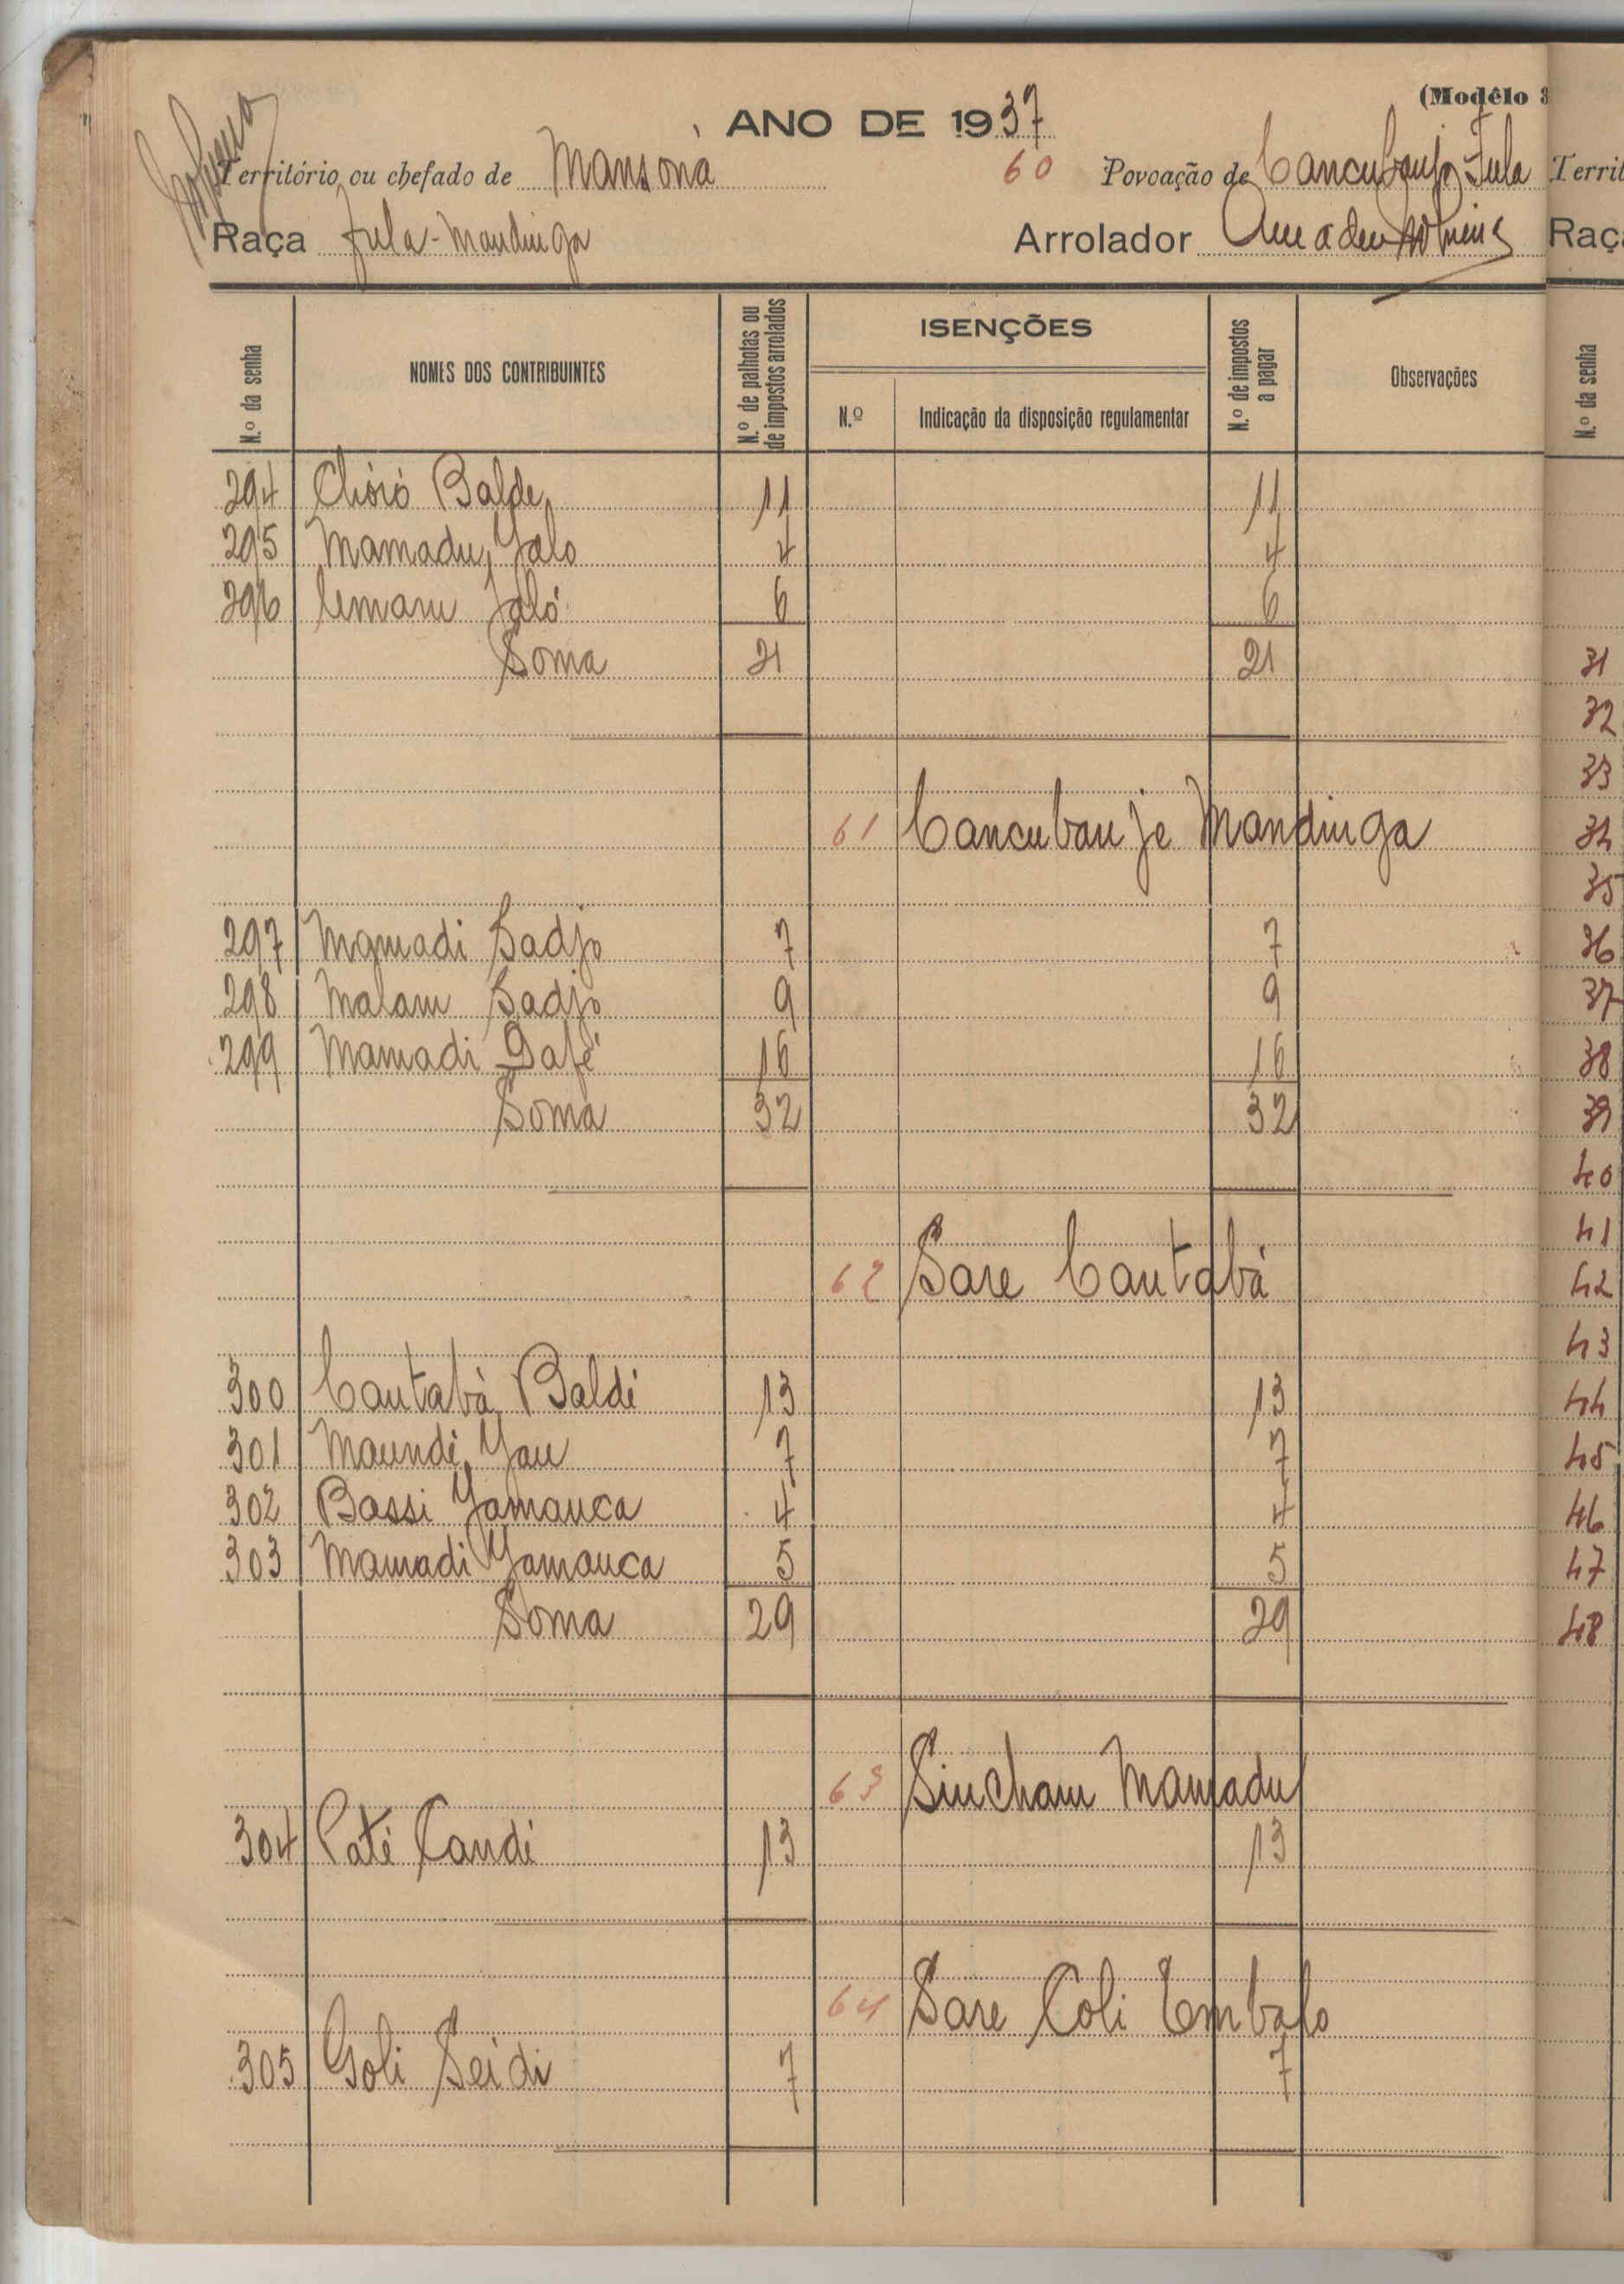 (Modêlo 3
ANO DE 1937
Território ou chefado de Mansoná 60 Povoação de Cancubauje Fula
Raça Fula-Mandinga Arrolador Amadeu
N.º da senha NOMES DOS CONTRIBUINTES N.º de palhotas ou de impostos arrolados ISENÇÕES N.º Indicação da disposição regulamentar N.º de impostos a pagar Observações
294 Chóró Balde 11 11
295 Mamadu Jalo 4 4
296 Jaló 6 6
Soma 21 21
61 Cancubauje Mandinga
297 Mamadi Sadjo 7 7
298 Malam Sadjo 9 9
299 Mamadi Dafé 16 16
Soma 32 32
62 Sare Cantabá
300 Cantabá Baldé 13 13
301 Maundé Jau 7 7
302 Bassi Jamanca 4 4
303 Mamadi Jamanca 5 5
Soma 29 29
63 Sincham Mamadu
304 Paté Candé 13 13
64 Sare Coli Embalo
305 Goli Seidi 7 7
Territ
Raç
N.º da senha
31
32
33
34
35
36
37
38
39
40
41
42
43
44
45
46
47
48